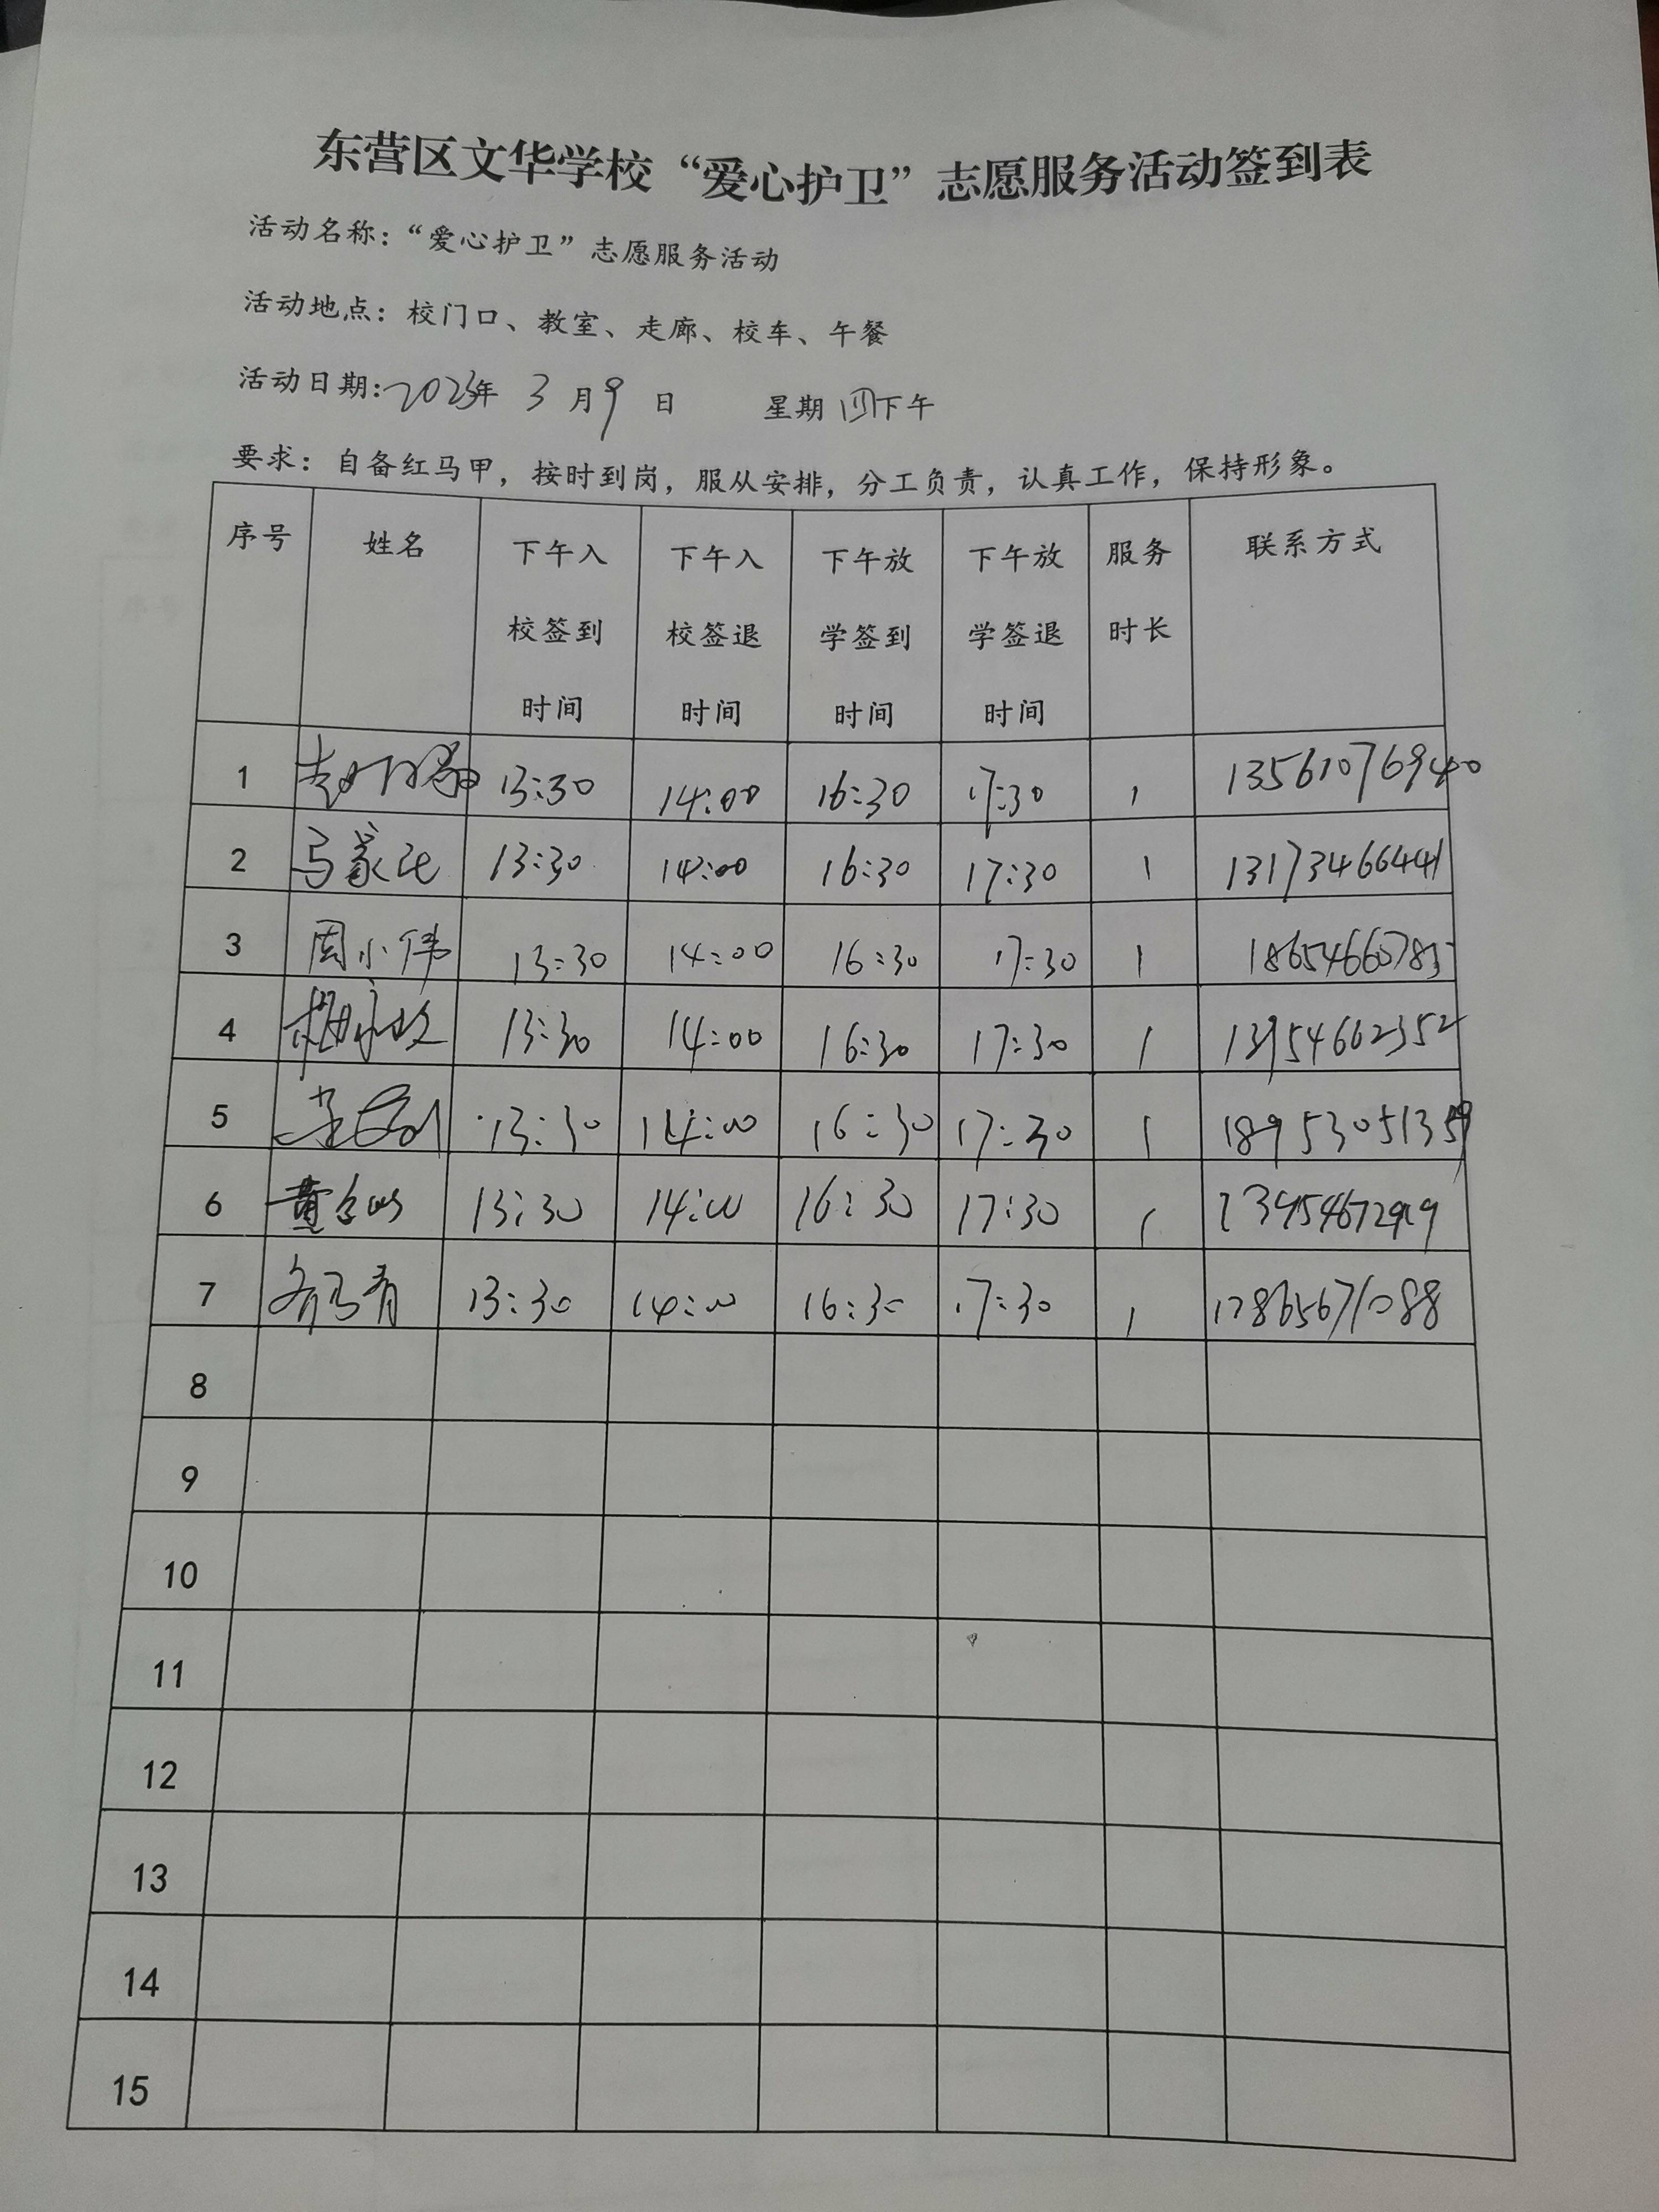 东营区文华学校“爱心护卫”志愿服务活动签到表
活动名称：“爱心护卫”志愿服务活动
活动地点：校门口、教室、走廊、校车、午餐
活动日期:2023年 3 月 9 日 星期 四下午
要求：自备红马甲，按时到岗，服从安排，分工负责，认真工作，保持形象。
序号 姓名 下午入校签到时间 下午入校签退时间 下午放学签到时间 下午放学签退时间 服务时长 联系方式
1 13:30 14:00 16:30 17:30 1 13561076940
2 马家 13:30 14:00 16:30 17:30 1 13173466441
3 周小伟 13:30 14:00 16:30 17:30 1
4 13:30 14:00 16:30 17:30 1 13954662352
5 13:30 14:00 16:30 17:30 1 18953051359
6 黄 13:30 14:00 16:30 17:30 1
7 13:30 14:00 16:30 17:30 1 17865671088
8
9
10
11
12
13
14
15